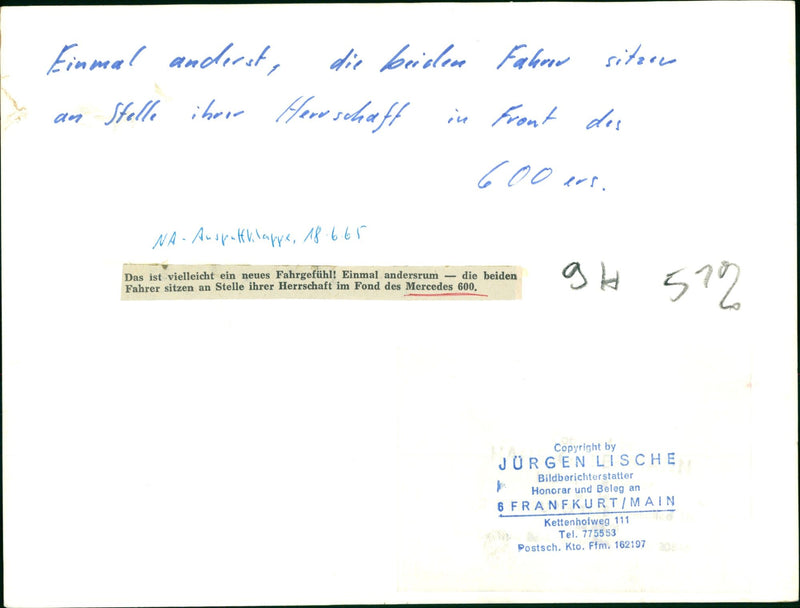 Einmal anderst, die beiden Fahrer sitzen
an Stelle ihrer Herrschaft in Front des
600 ers.
NA-Auspuffklappe, 18.6.65
Das ist vielleicht ein neues Fahrgefühl! Einmal andersrum — die beiden
Fahrer sitzen an Stelle ihrer Herrschaft im Fond des Mercedes 600.
9H 512
Copyright by
JÜRGEN LISCHE
Bildberichterstatter
Honorar und Beleg an
6 FRANFKURT/MAIN
Kettenhofweg 111
Tel. 775553
Postsch. Kto. Ffm. 162197